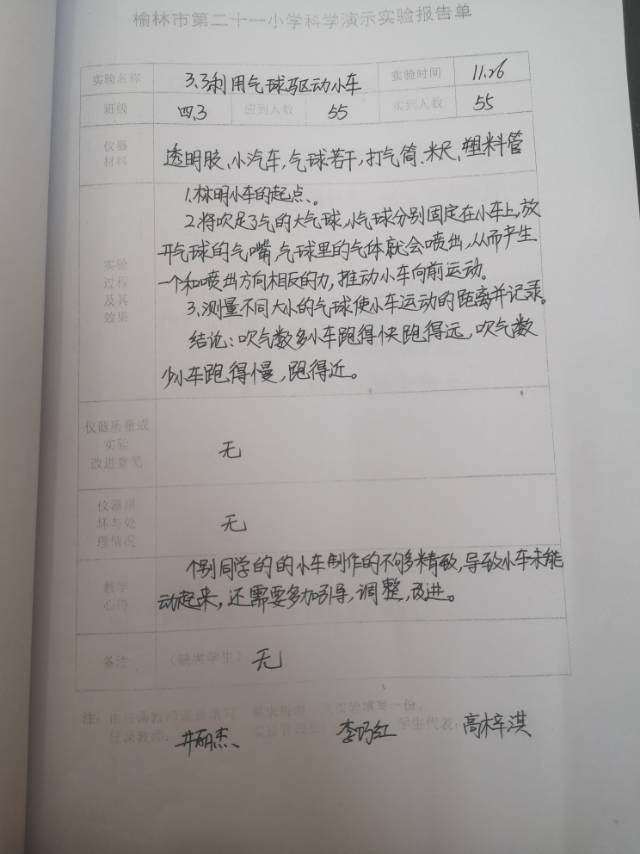 榆林市第二十一小学科学演示实验报告单
实验名称 3.3利用气球驱动小车 实验时间 11.26
班级 四.3 应到人数 55 实到人数 55
仪器
材料
透明胶、小汽车,气球若干,打气筒、米尺、塑料管
实验
过程
及其
效果
1.标明小车的起点、。
2.将吹足了气的大气球,小气球分别固定在小车上,放
开气球的气嘴,气球里的气体就会喷出,从而产生
一个和喷出方向相反的力,推动小车向前运动。
3.测量不同大小的气球使小车运动的距离并记录。
结论:吹气数多小车跑得快跑得远,吹气数
少小车跑得慢,跑得近。
仪器质量或
实验
改进意见
无
仪器损
坏与处
理情况
无
教学
心得
个别同学的的小车制作的不够精致,导致小车未能
动起来,还需要多加引导,调整,改进。
备注 (缺席学生) 无
注:
任课教师: 李巧红 学生代表: 高梓洪